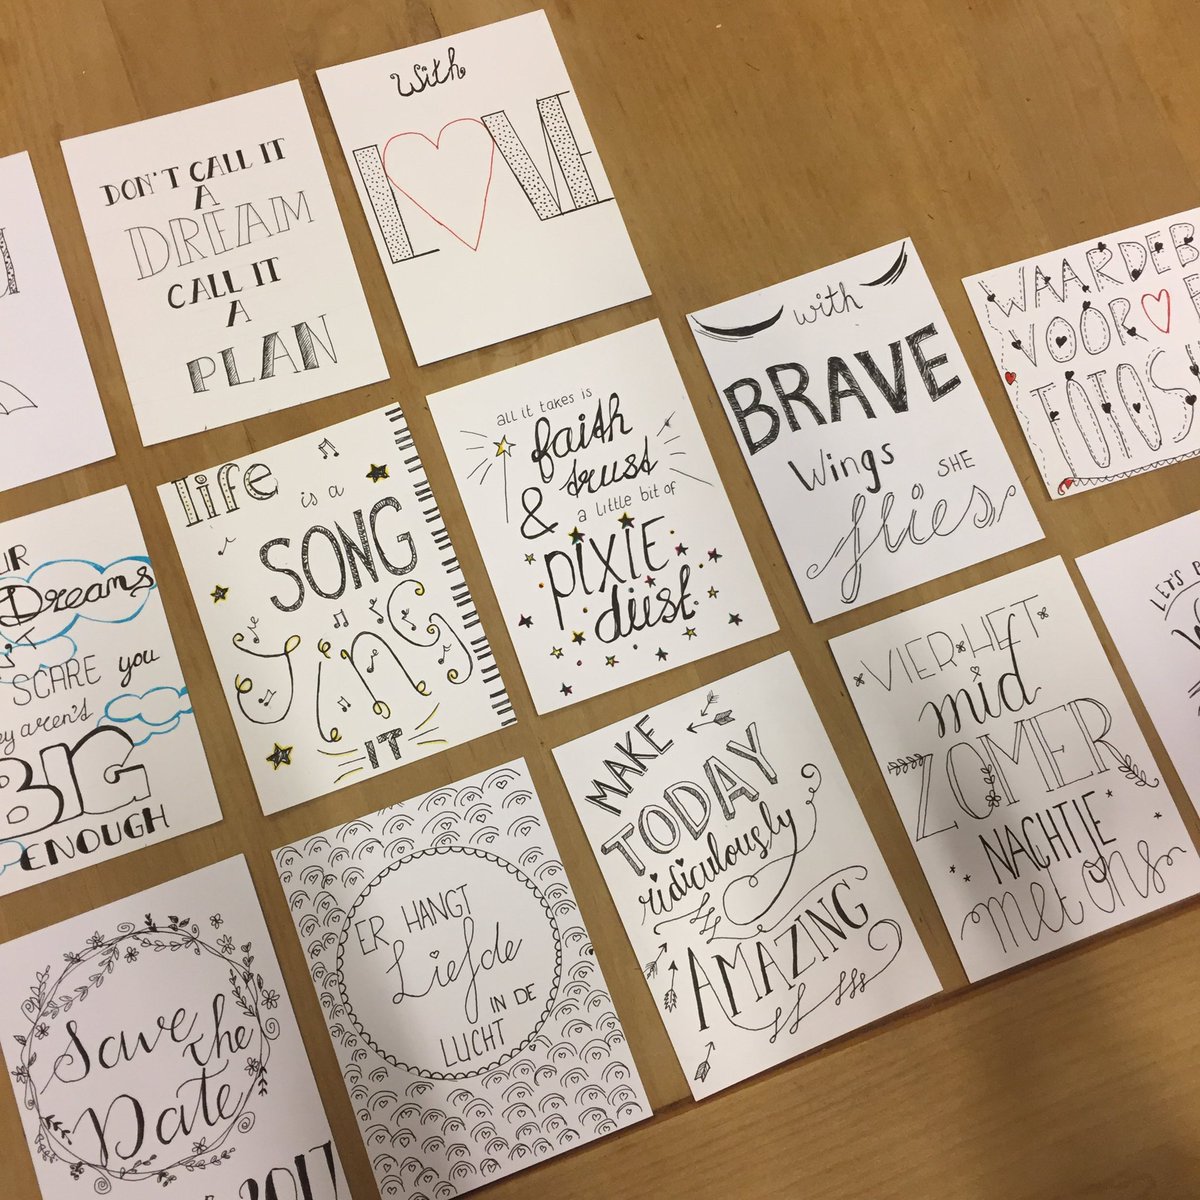 DON'T CALL IT
A
DREAM
CALL IT
A
PLAN
With
LOVE
with
BRAVE
Wings SHE
flies
WAARDEB
VOOR
FOTO'S
Dreams
SCARE you
aren't
BIG
ENOUGH
life
is a
SONG
SING
IT
all it takes is
faith
trust
&
a little bit of
PIXIE
dust
MAKE
TODAY
ridiculously
AMAZING
VIER HET
mid
ZOMER
NACHTJE
met ons
LET'S
Save
the
Date
2017
ER HANGT
Liefde
IN DE
LUCHT